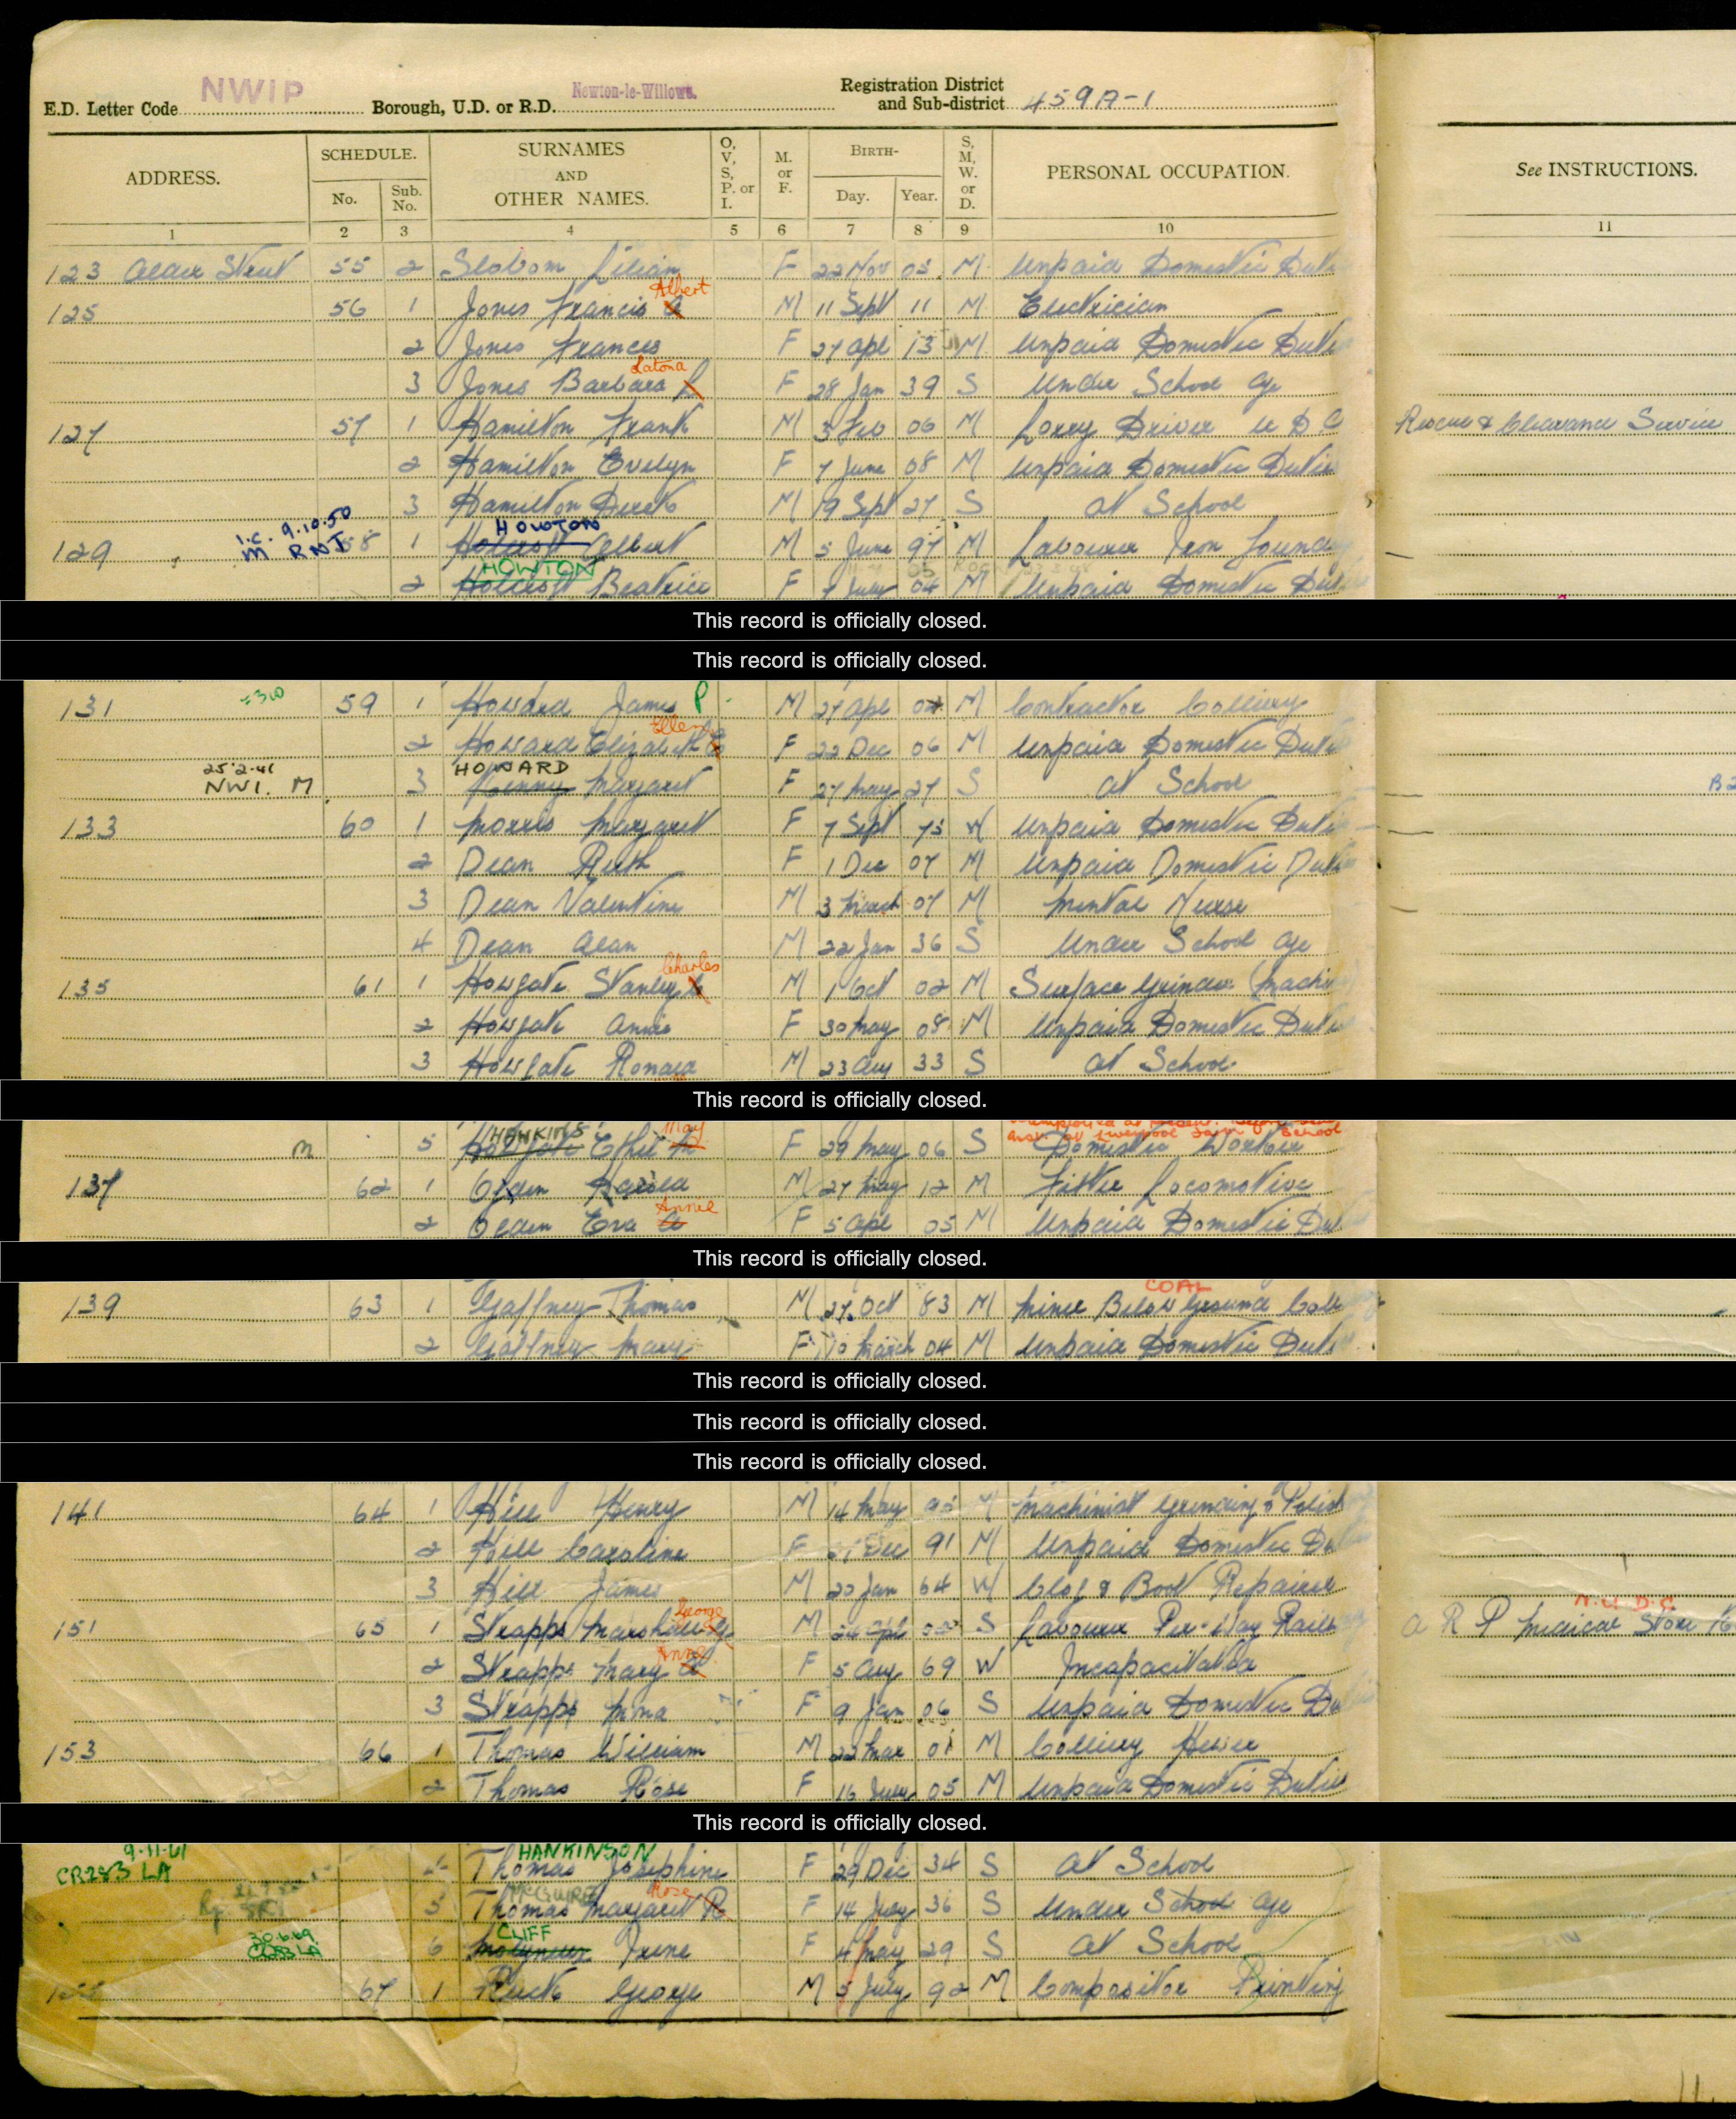 E.D. Letter Code NWIP Borough, U.D. or R.D. Newton-le-Willows. Registration District and Sub-district 459A-1
ADDRESS. SCHEDULE. No. Sub. No. SURNAMES AND OTHER NAMES. O, V, S, P. or I. M. or F. BIRTH- Day. Year. S, M, W. or D. PERSONAL OCCUPATION. See INSTRUCTIONS.
1 2 3 4 5 6 7 8 9 10 11
123 Street 55 2 Lilian F 22 Nov 03 M Unpaid Domestic
Albert
125 56 1 Jones Francis A M 11 Sept 11 M Electrician
2 Jones Frances F 27 Apl 13 M Unpaid Domestic
Latona
3 Jones Barbara L F 28 Jan 39 S Under School Age
127 57 1 Hamilton Frank M 3 Feb 06 M Lorry Driver U D C Rescue & Clearance Service
2 Hamilton Evelyn F 7 June 08 M Unpaid Domestic Duties
3 Hamilton Derek M 19 Sept 27 S At School
9.10.50 HOWTON
129 M RNI 58 1 Holcroft Albert M 5 June 97 M Labourer Iron Foundry
HOWTON
2 Holcroft Beatrice F 7 July 04 M Unpaid Domestic
This record is officially closed.
This record is officially closed.
131 59 1 Howard James P M 27 Apl 02 M Contractor Colliery
Ellen
2 Howard Elizabeth E F 22 Dec 06 M Unpaid Domestic
25.2.41 HOWARD
NWI. M 3 Kenny Margaret F 27 May 27 S At School
133 60 1 Morris Margaret F 7 Sept 75 W Unpaid Domestic
2 Dean Ruth F 1 Dec 07 M Unpaid Domestic
3 Dean Valentine M 3 March 07 M Mental Nurse
4 Dean Alan M 22 Jan 36 S Under School Age
Charles
135 61 1 Howgate Stanley C M 1 Oct 02 M Surface Grinder
2 Howgate Annie F 30 May 08 M Unpaid Domestic
3 Howgate Ronald M 23 Aug 33 S At School
This record is officially closed.
HAWKINS May School
M 5 Howgate Ethel M F 29 May 06 S Domestic Worker
137 62 1 Ogden Harold M 27 May 12 M Fitter Locomotive
Annie
2 Ogden Eva A F 5 Apl 05 M Unpaid Domestic
This record is officially closed.
COAL
139 63 1 Gaffney Thomas M 27 Oct 83 M Miner Below Ground
2 Gaffney Mary F 10 March 04 M Unpaid Domestic
This record is officially closed.
This record is officially closed.
This record is officially closed.
141 64 1 Hill Henry M 14 May M Machinist Grinding & Polish
2 Hill Caroline F Dec 91 M Unpaid Domestic
3 Hill James M 20 Jan 64 W Clog & Boot Repairer
George N.U.D.C.
151 65 1 Strapps Marshall G M 24 Apl S Labourer Per-Way A R P Medical Store
Anne
2 Strapps Mary A F 5 Aug 69 W Incapacitated
3 Strapps Mina F 9 Jan 06 S Unpaid Domestic
153 66 1 Thomas William M 22 Mar 01 M Colliery Hewer
2 Thomas Rose F 16 July 05 M Unpaid Domestic Duties
This record is officially closed.
9.11.61 HANKINSON
CR283 LA 4 Thomas Josephine F 29 Dec 34 S At School
McGUIRE Rose
5 Thomas Margaret R F 14 July 36 S Under School Age
30.6.49 CLIFF
6 Molyneux Irene F 4 May 29 S At School
67 1 George M 3 July 92 M Compositor Printing